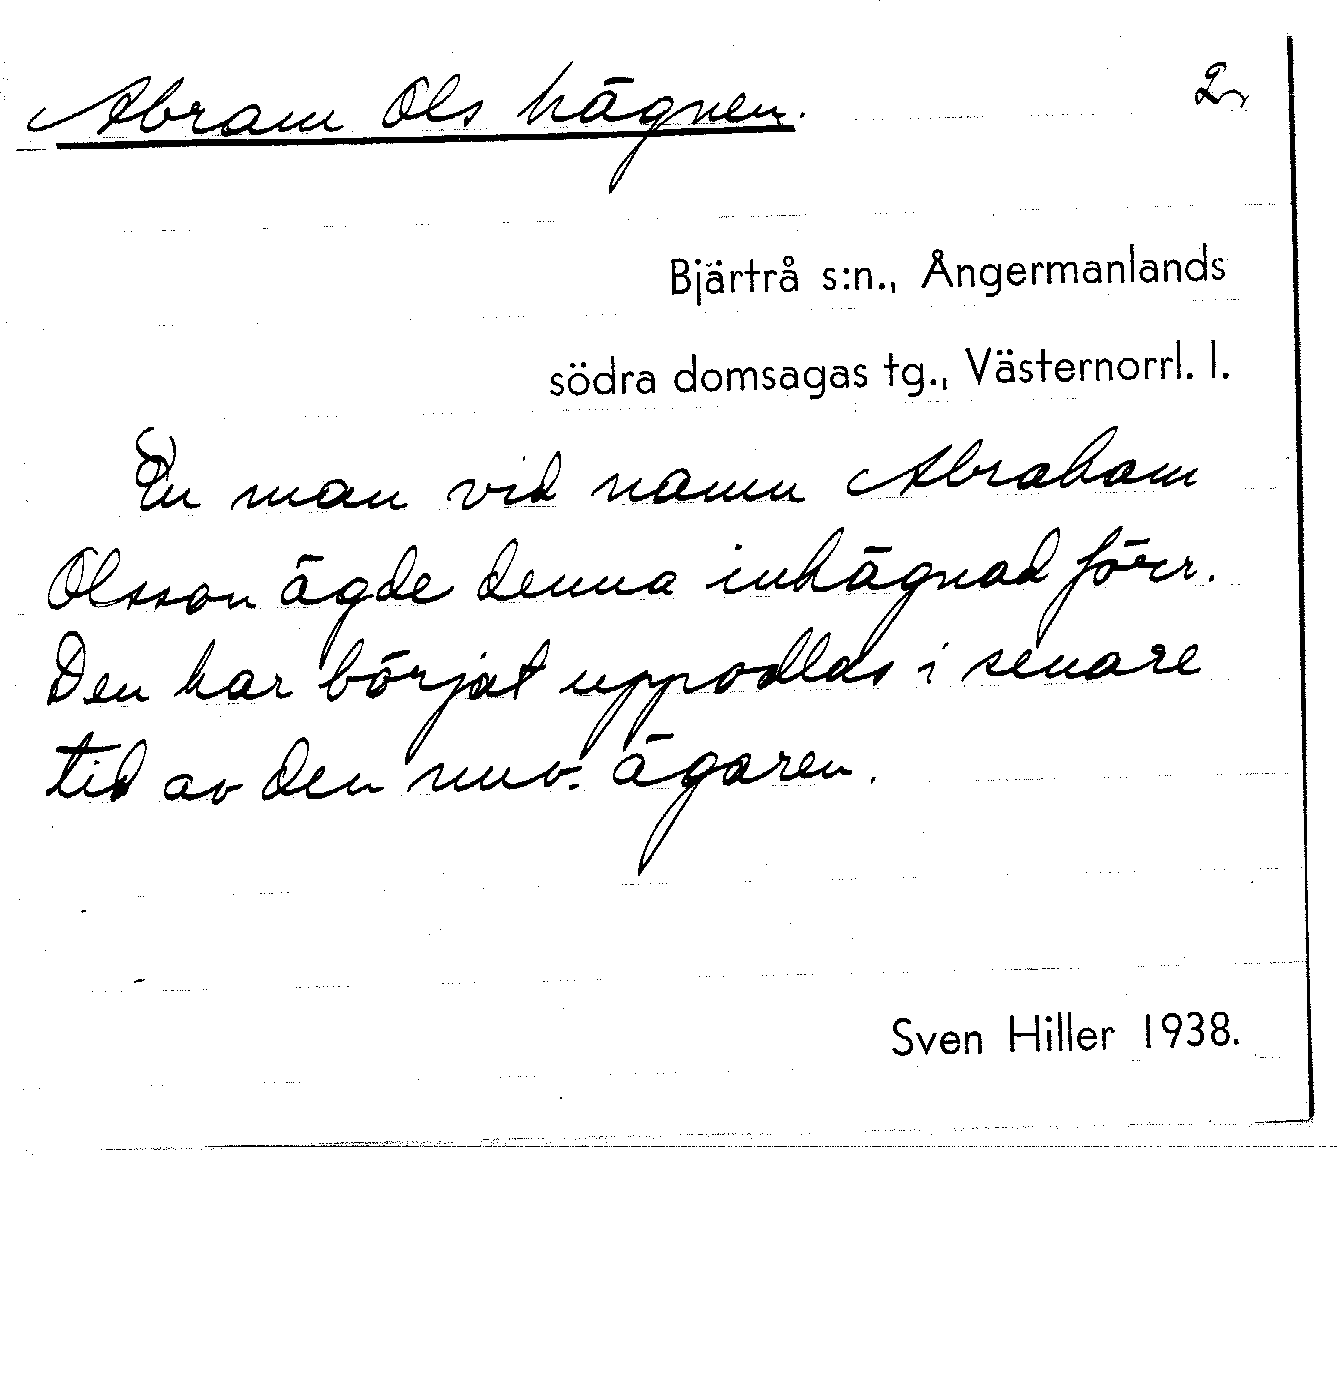 Abram Ols hägnen. 2.
Bjärtrå s:n., Ångermanlands
södra domsagas tg., Västernorrl. l.
En man vid namn Abraham
Olsson ägde denna inhägnad förr.
Den har börjat uppodlas i senare
tid av den nuv. ägaren.
Sven Hiller 1938.